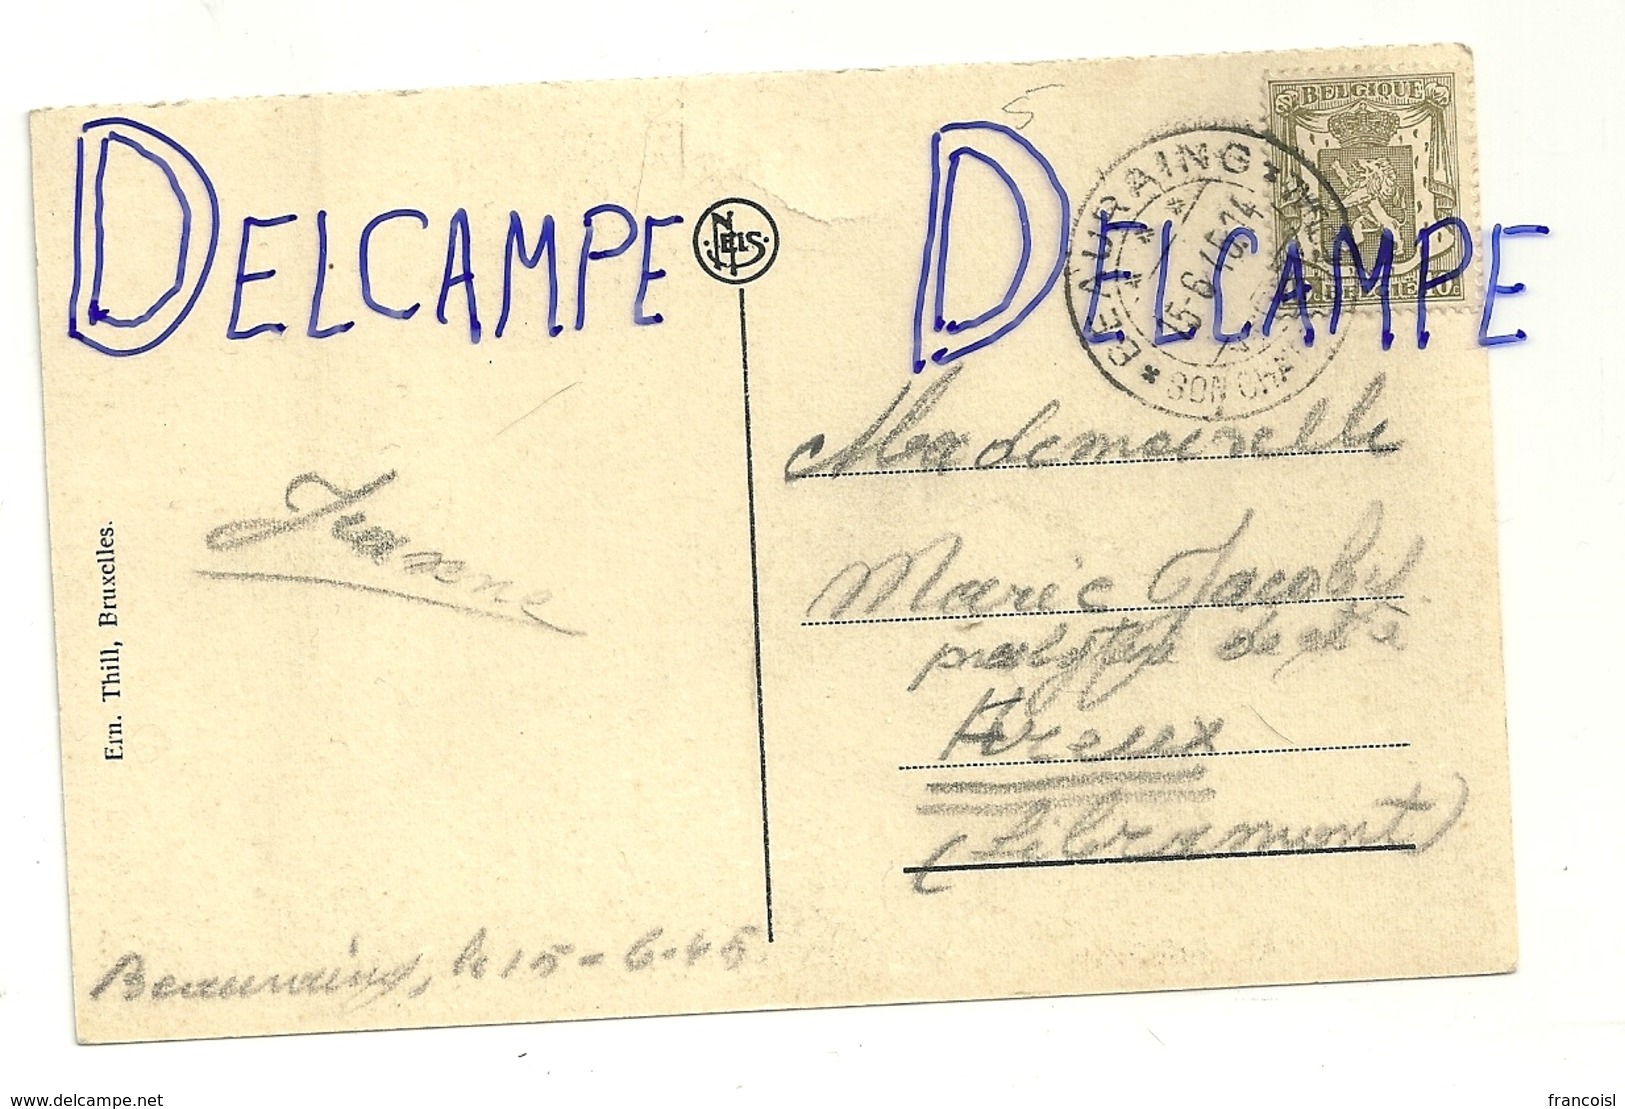 DELCAMPE
DELCAMPE
NELS
BELGIQUE
BELGIE
* BEAURAING *
15-6-45.14
SON CHA
Ern. Thill, Bruxelles.
Jeanne
Beauraing, le 15-6-45
Mademoiselle
Marie
Libramont)
www.delcampe.net
francoisl